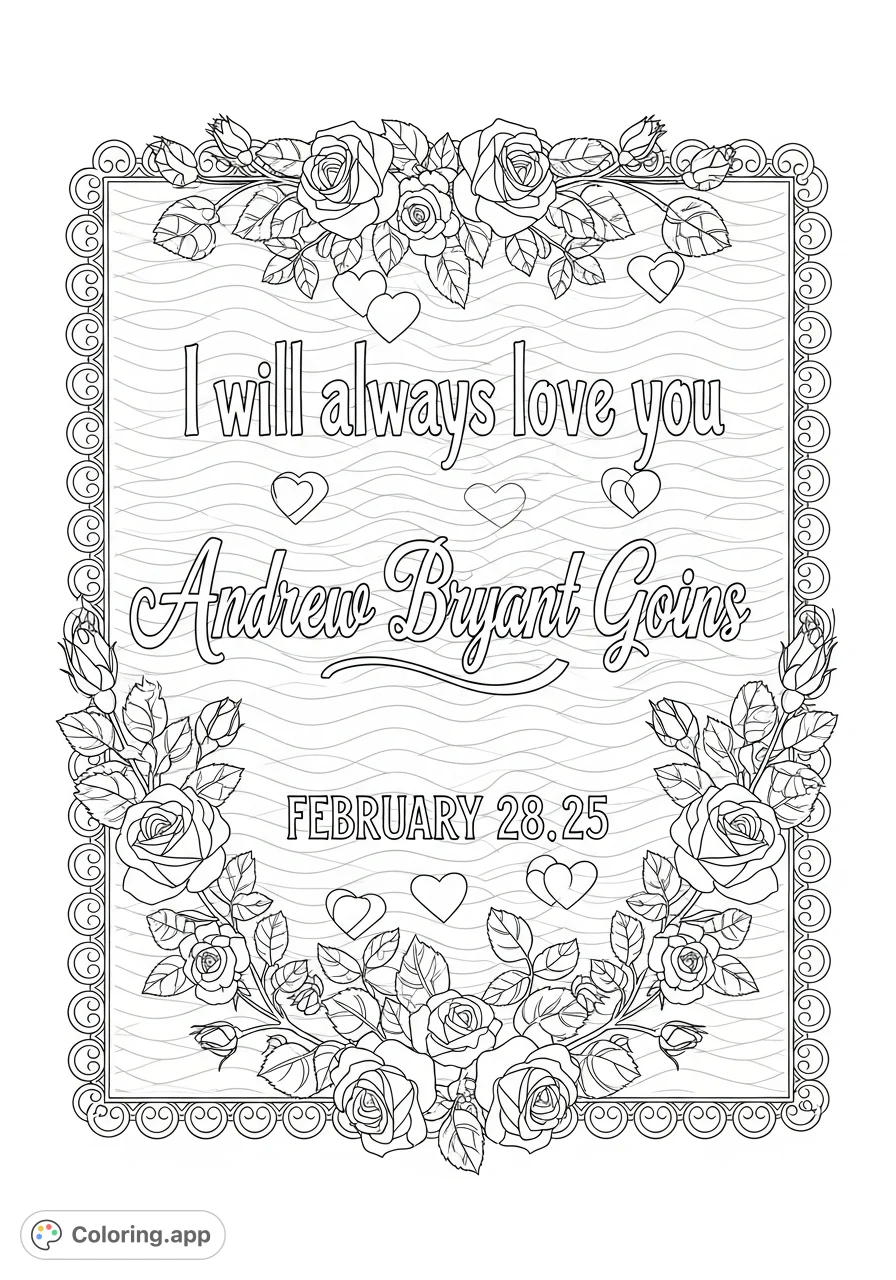 I will always love you
Andrew Bryant Goins
FEBRUARY 28.25
Coloring.app